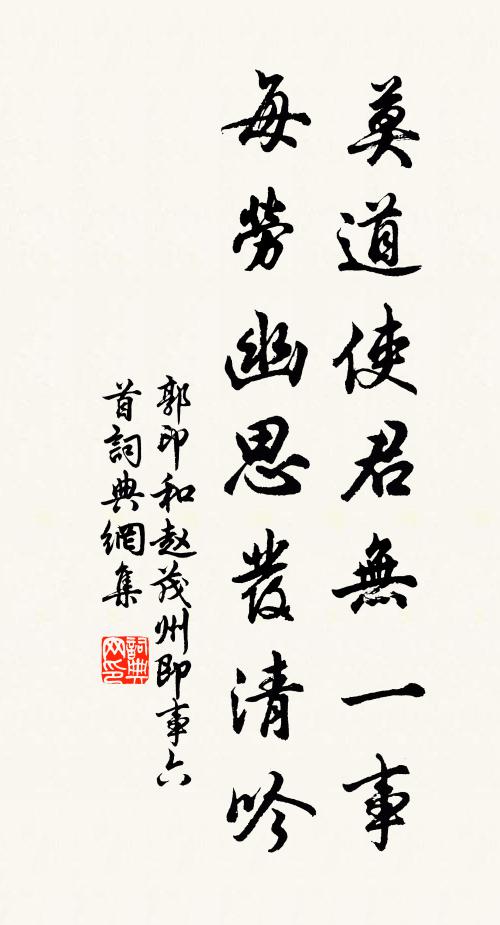 莫道使君無一事
每勞幽思發清吟
郭印和赵茂州即事六
首詞典網集
詞典網印